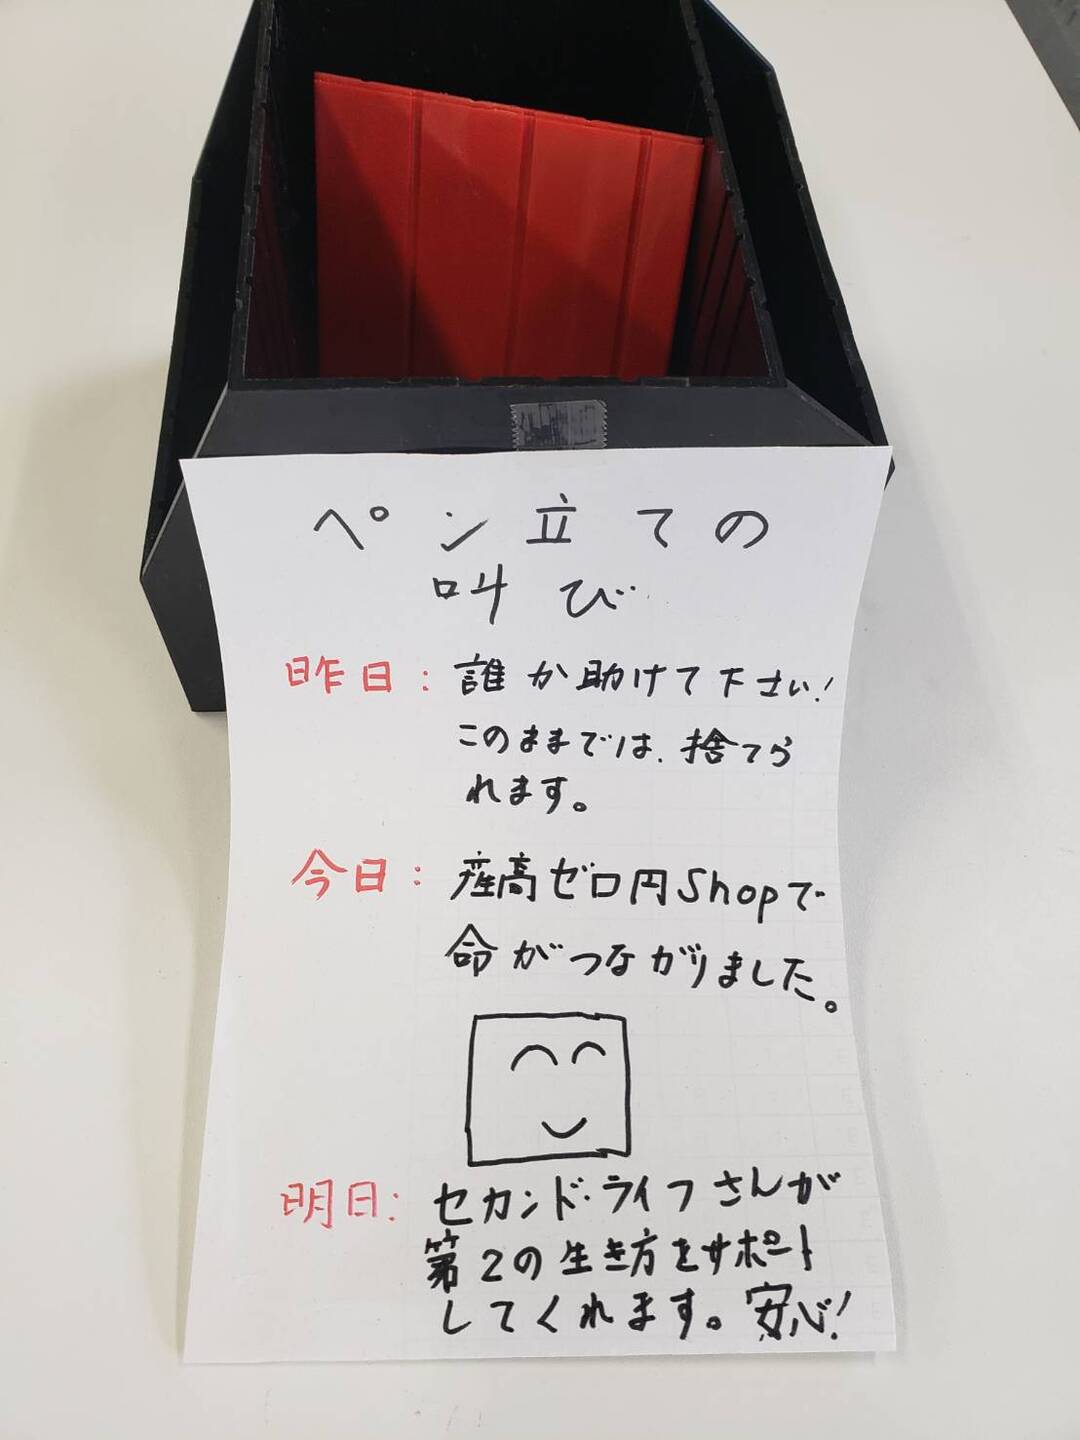 ペン立ての
叫び
昨日：誰か助けて下さい！
このままでは、捨てら
れます。
今日：産高ゼロ円Shopで
命がつながりました。
明日：セカンド・ライフさんが
第2の生き方をサポート
してくれます。安心！